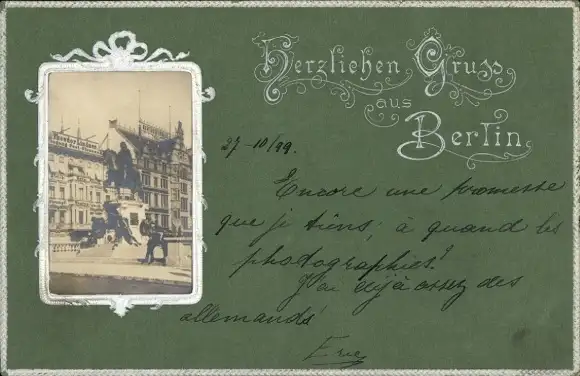 Herzlichen Gruss
aus
Berlin
27-10/99.
Encore une promesse
que je tiens; à quand les
photographies?
J'ai déjà assez des
allemands!